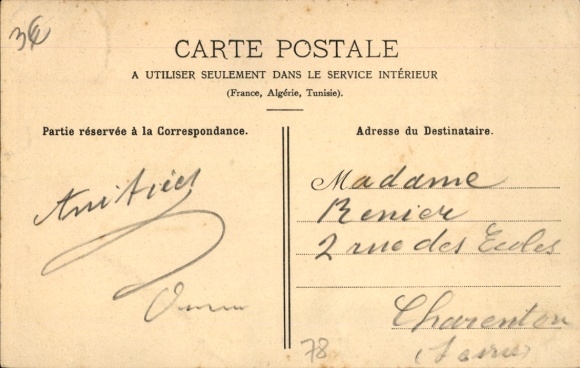 CARTE POSTALE
A UTILISER SEULEMENT DANS LE SERVICE INTÉRIEUR
(France, Algérie, Tunisie).
Partie réservée à la Correspondance.
Adresse du Destinataire.
Amitiées
Madame
Renier
2 rue des Ecoles
Charenton
78